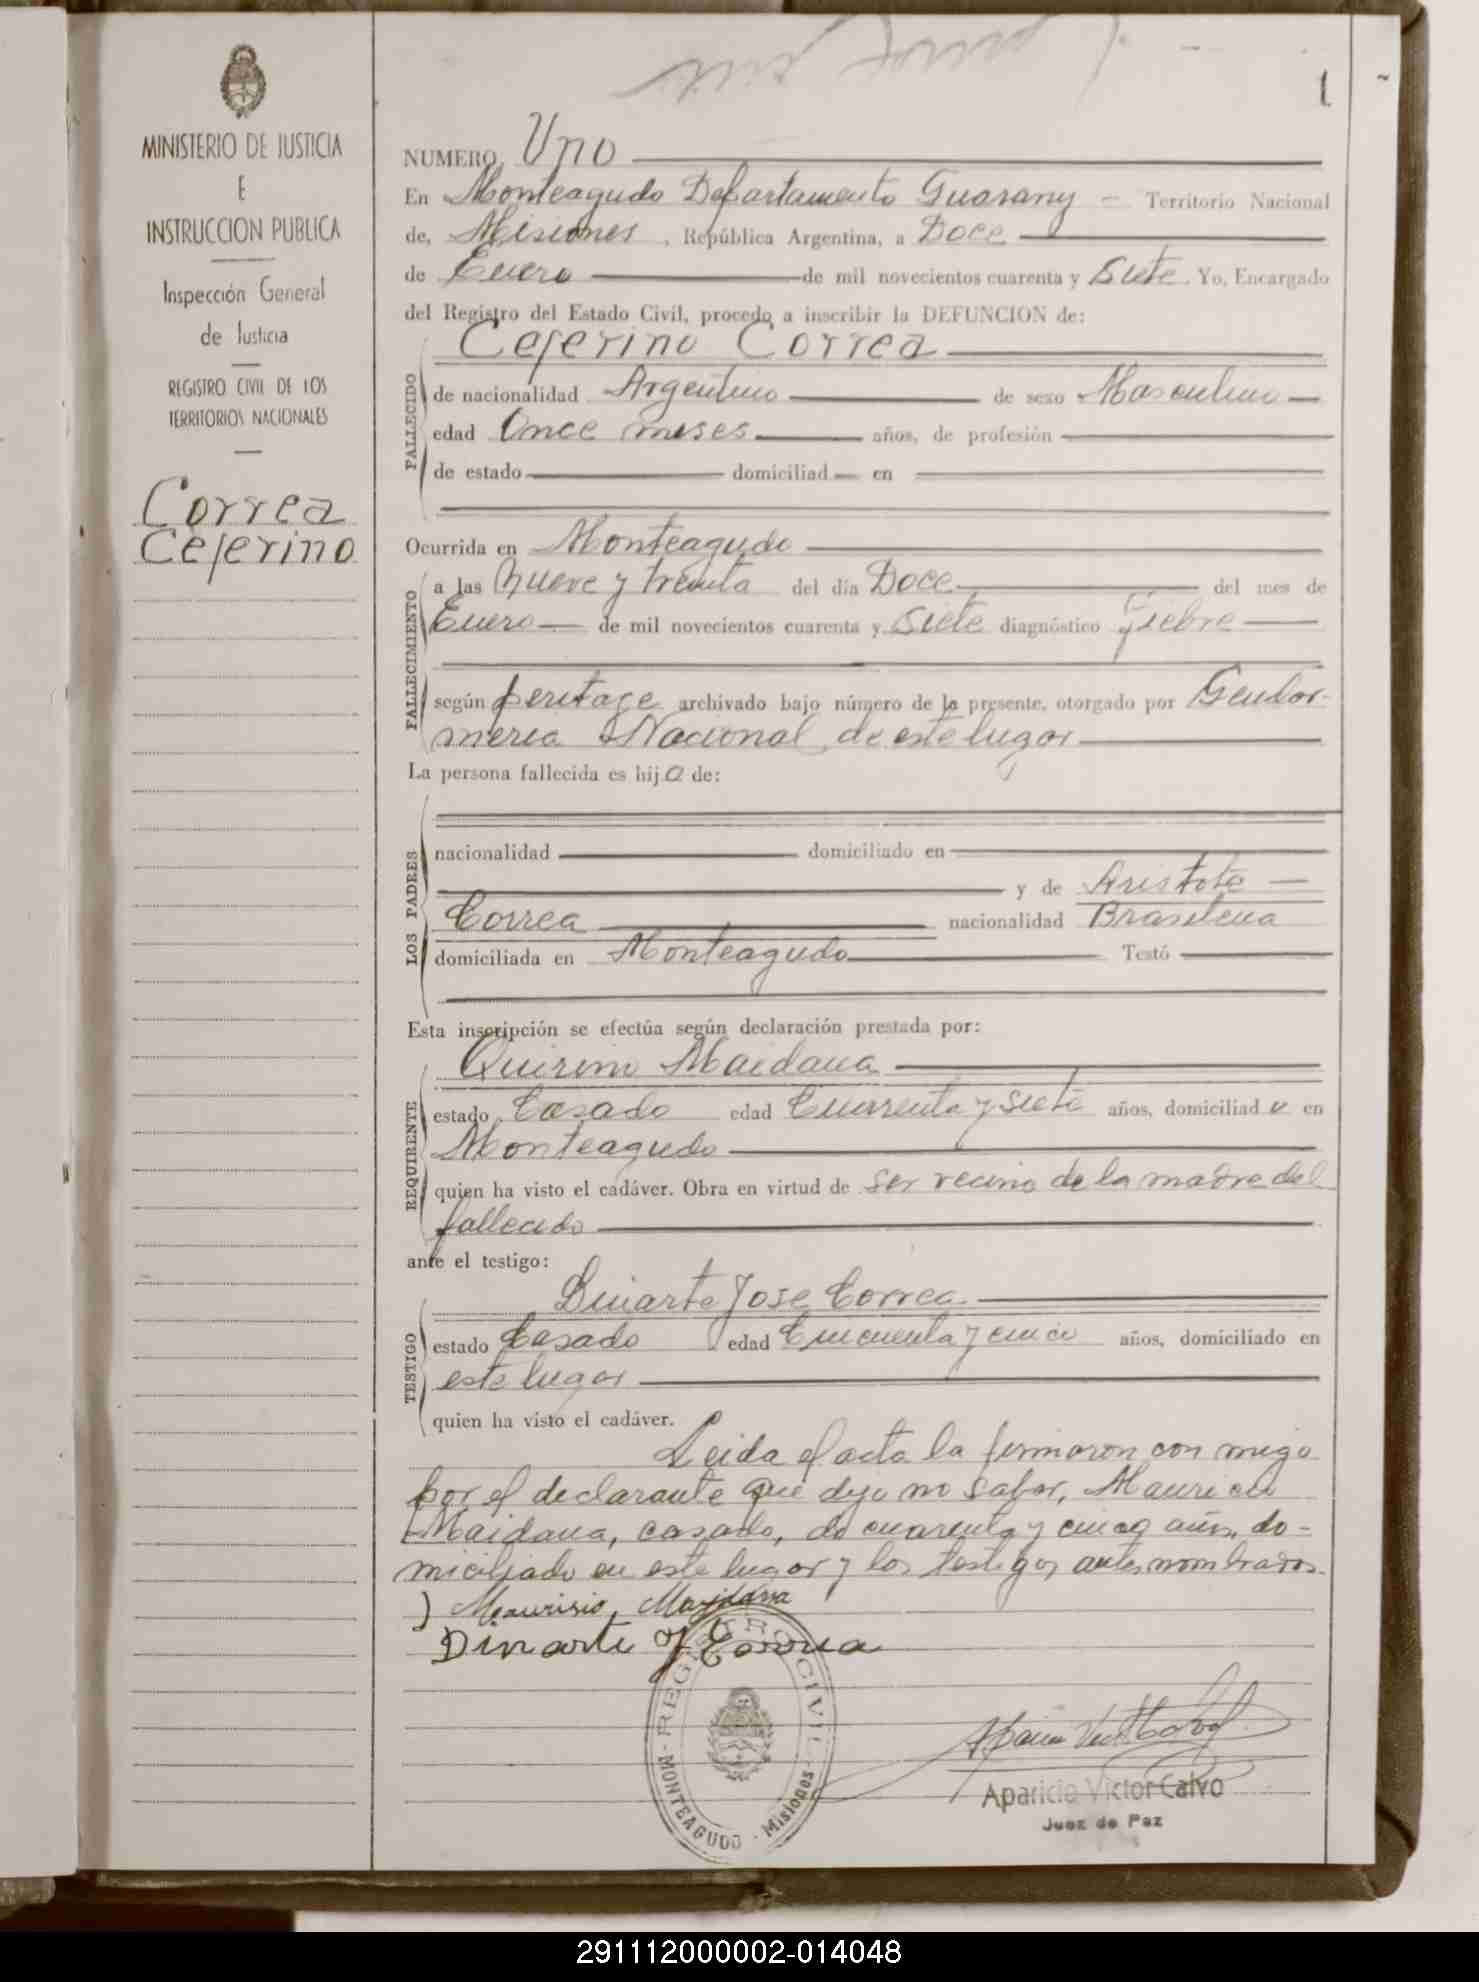 1
MINISTERIO DE JUSTICIA
E
INSTRUCCION PUBLICA
Inspección General
de Justicia
REGISTRO CIVIL DE LOS
TERRITORIOS NACIONALES
Correa
Ceferino
NUMERO Uno
En Monteagudo Departamento Guarany - Territorio Nacional
de, Misiones, República Argentina, a Doce
de Enero de mil novecientos cuarenta y siete. Yo, Encargado
del Registro del Estado Civil, procedo a inscribir la DEFUNCION de:
Ceferino Correa
FALLECIDO
de nacionalidad Argentino de sexo Masculino
edad Once meses años, de profesión
de estado domiciliad en
Ocurrida en Monteagudo
FALLECIMIENTO
a las nueve y treinta del día Doce del mes de
Enero de mil novecientos cuarenta y siete diagnóstico fiebre
según peritage archivado bajo número de la presente, otorgado por Gendar-
meria Nacional de este lugar
La persona fallecida es hijo de:
LOS PADRES
nacionalidad domiciliado en
y de Aristota
Correa nacionalidad Brasilena
domiciliada en Monteagudo Testó
Esta inscripción se efectúa según declaración prestada por:
Quirino Maidana
REQUIRENTE
estado Casado edad Cuarenta y siete años, domiciliado en
Monteagudo
quien ha visto el cadáver. Obra en virtud de ser vecino de la madre del
fallecido
ante el testigo:
Dinarte Jose Correa
TESTIGO
estado Casado edad Cincuenta y cinco años, domiciliado en
este lugar
quien ha visto el cadáver.
Leida el acta la firmaron con migo
por el declarante que dijo no saber, Mauricio
Maidana, casado, de cuarenta y cinco años, do-
miciliado en este lugar y los testigos antes nombrados.
Maurisio Maydana
Dinarte J Correa
REGISTRO CIVIL
MONTEAGUDO - Misiones
Aparicio Victor Calvo
Juez de Paz
291112000002-014048